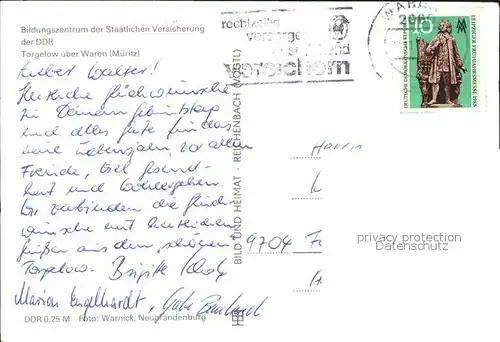 Bildungszentrum der Staatlichen Versicherung
der DDR
Torgelow über Waren (Müritz)
Lieber Walter!
Herzliche Glückwünsche
zu Deinem Geburtstag
und alles Gute für das
neue Lebensjahr, vor allem
Freude, viel Gesund-
heit und Wohlergehen.
Wir verbinden die Glück-
wünsche mit herzlichen
Grüßen aus dem schönen
Torgelow. Brigitte
Marion Engelhardt, Gabi
DDR 0.25 M Foto: Warnick, Neubrandenburg
BILD UND HEIMAT · REICHENBACH (VOGTL)
rechtzeitig
vorsorgen
versichern
WAREN
10
DEUTSCHE DEMOKRATISCHE REPUBLIK
LEIPZIGER FRÜHJAHRSMESSE 1985
9704
privacy protection
Datenschutz